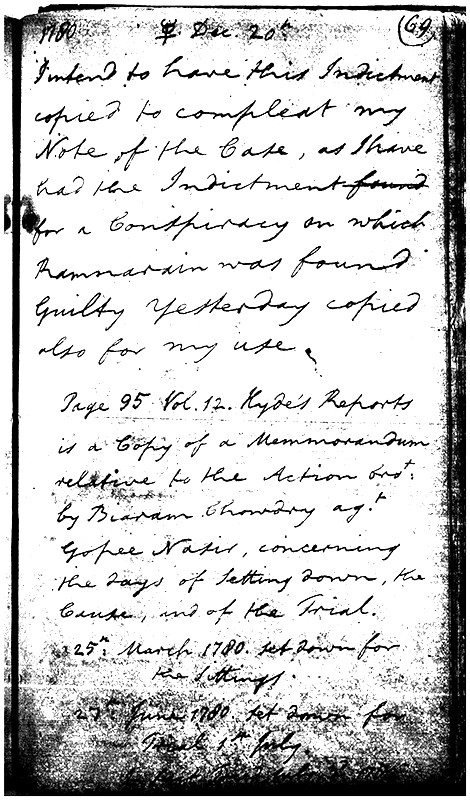 1780 Dec 20th (69)
I intend to have this Indictment
copied to compleat my
Note of the Case, as I have
had the Indictment found
for a Conspiracy on which
Ramnarain was found
Guilty Yesterday copied
also for my use.
Page 95 Vol. 12. Hyde's Reports
is a Copy of a Memmorandum
relative to the Action brot.
by Biaram Chowdry agt.
Gopee Nasir, concerning
the days of setting down, the
Cause, and of the Trial.
25th. March 1780. set down for
the Sittings.
27th June 1780. set down for
Trial 1st July